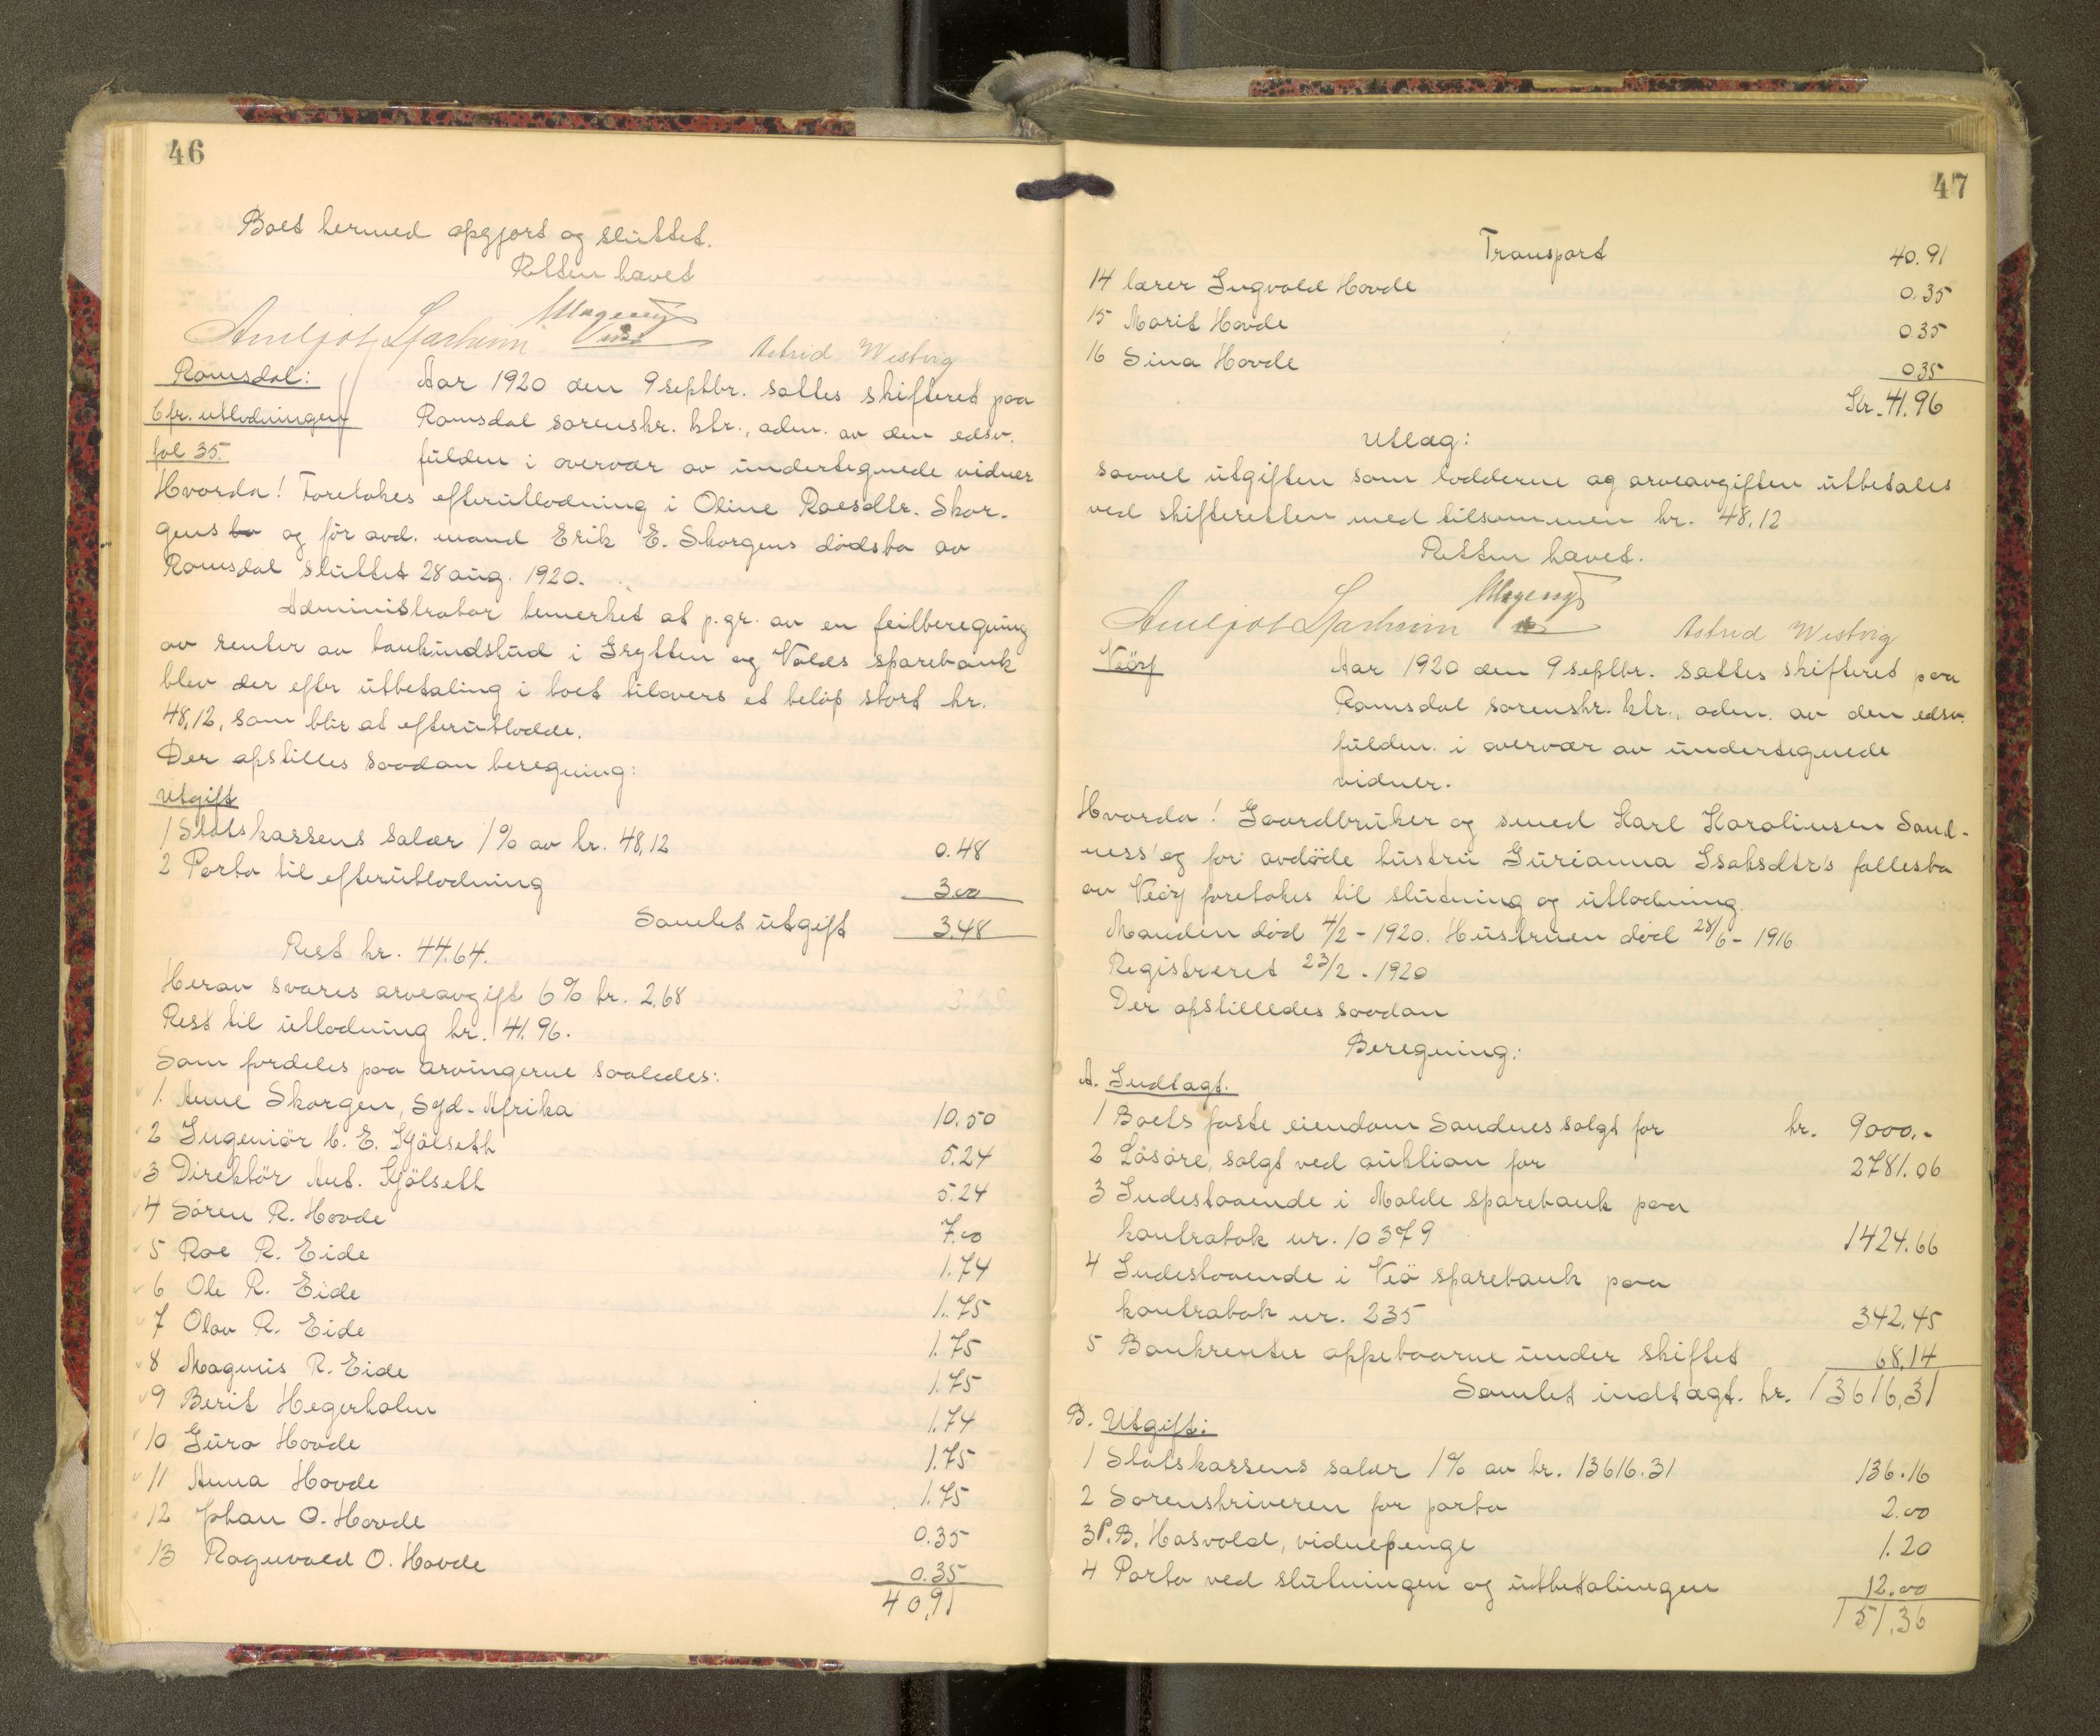 46
Boet hermed opgjort og sluttet.
Retten hævet
Astrid Westvig
Romsdal:
Cfr. utlodningen
fol 35.
Aar 1920 den 9 septbr. sattes skifteret paa
Romsdal sorenskr. ktr., adm. av den edsv.
fulden i overvær av undertegnede vidner
Hvorda! Foretokes efterutlodning i Oline Roesdtr. Skor-
gens bo og før avd. mand Erik E. Skorgens dødsbo av
Romsdal sluttet 28 aug. 1920.
Administrator bemerket at p.gr. av en feilberegning
av renter av bankindskud i Grytten og Volds sparebank
blev der efter utbetaling i boet tilovers et beløp stort kr.
48,12, som blir at efterutlodde.
Der opstilles saadan beregning:
Utgift
1 Statskassens salær 1% av kr. 48,12 0.48
2 Porto til efterutlodning 3.00
Samlet utgift 3.48
Rest kr. 44.64.
Herav svares arveavgift 6% kr. 2.68
Rest til utlodning kr. 41.96.
Som fordeles paa arvingerne saaledes:
1. Anne Skorgen, Syd-Afrika 10.50
2 Ingeniør C. E. Kjölseth 5.24
3 Direktør Ant. Kjölseth 5.24
4 Sören R. Hovde 7.00
5 Roe R. Eide 1.74
6 Ole R. Eide 1.75
7 Olav R. Eide 1.75
8 Magnus R. Eide 1.75
9 Berit Hegerholm 1.74
10 Guro Hovde 1.75
11 Anna Hovde 1.75
12 Johan O. Hovde 0.35
13 Ragnvald O. Hovde 0.35
40,91
47
Transport 40.91
14 lærer Ingvald Hovde 0.35
15 Marit Hovde 0.35
16 Sina Hovde 0.35
Kr. 41.96
Utlæg:
Saavel utgiften som lodderne og arveavgiften utbetales
ved skifteretten med tilsammen kr. 48.12
Retten hævet.
Astrid Westvig
Veöy
Aar 1920 den 9 septbr. sattes skifteret paa
Romsdal sorenskr. ktr., adm. av den edsv.
fuldm. i overvær av undertegnede
vidner.
Hvorda! Gaardbruker og smed Karl Karoliusen Sand-
ness' og for avdøde hustru Gurianna Isaksdtr's fællesbo
av Veöy foretokes til slutning og utlodning.
Manden død 4/2 - 1920. Hustruen død 28/6 - 1916
Registreret 23/2 - 1920
Der opstilledes saadan
Beregning:
A. Indtægt.
1 Boets faste eiendom Sandnes solgt for kr. 9000.-
2 Løsøre, solgt ved auktion for 2781.06
3 Indestaaende i Molde sparebank paa
kontrabok nr. 10379 1424.66
4 Indestaaende i Veö sparebank paa
kontrabok nr. 235 342,45
5 Bankrenter oppebaarne under skiftet 68.14
Samlet indtægt. kr. 13616,31
B. Utgift:
1 Statskassens salær 1% av kr. 13616.31 136.16
2 Sorenskriveren for porto 2.00
3 P.B. Hasvold, vidnepenge 1.20
4 Porto ved slutningen og utbetalingen 12.00
151,36